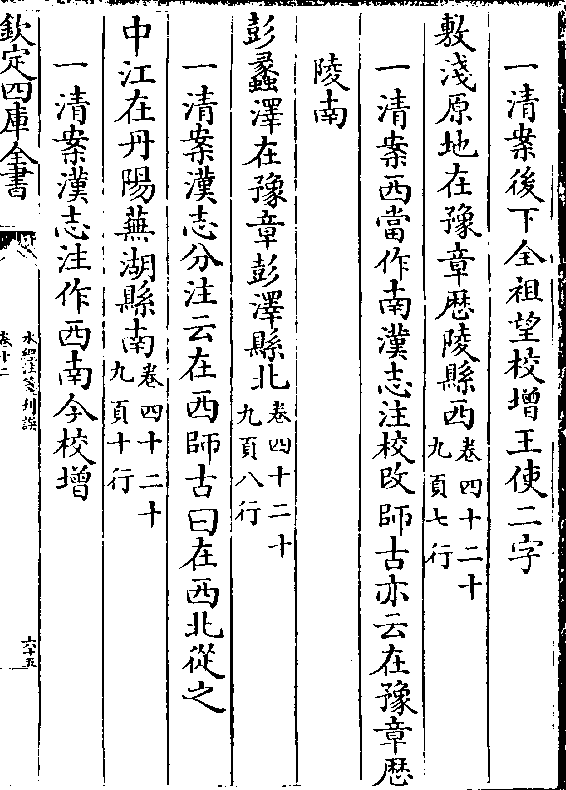 一清案後下全祖望校增王使二字
敷淺原地在豫章歴陵縣西卷四十二十九頁七行
一清案西當作南漢志注校改師古亦云在豫章歴
陵南
彭蠡澤在豫章彭澤縣北卷四十二十九頁八行
一清案漢志分注云在西師古曰在西北從之
中江在丹陽蕪湖縣南卷四十二十九頁十行
一清案漢志注作西南今校增
欽定四庫全書
水經注箋刊誤
卷十二
六十五